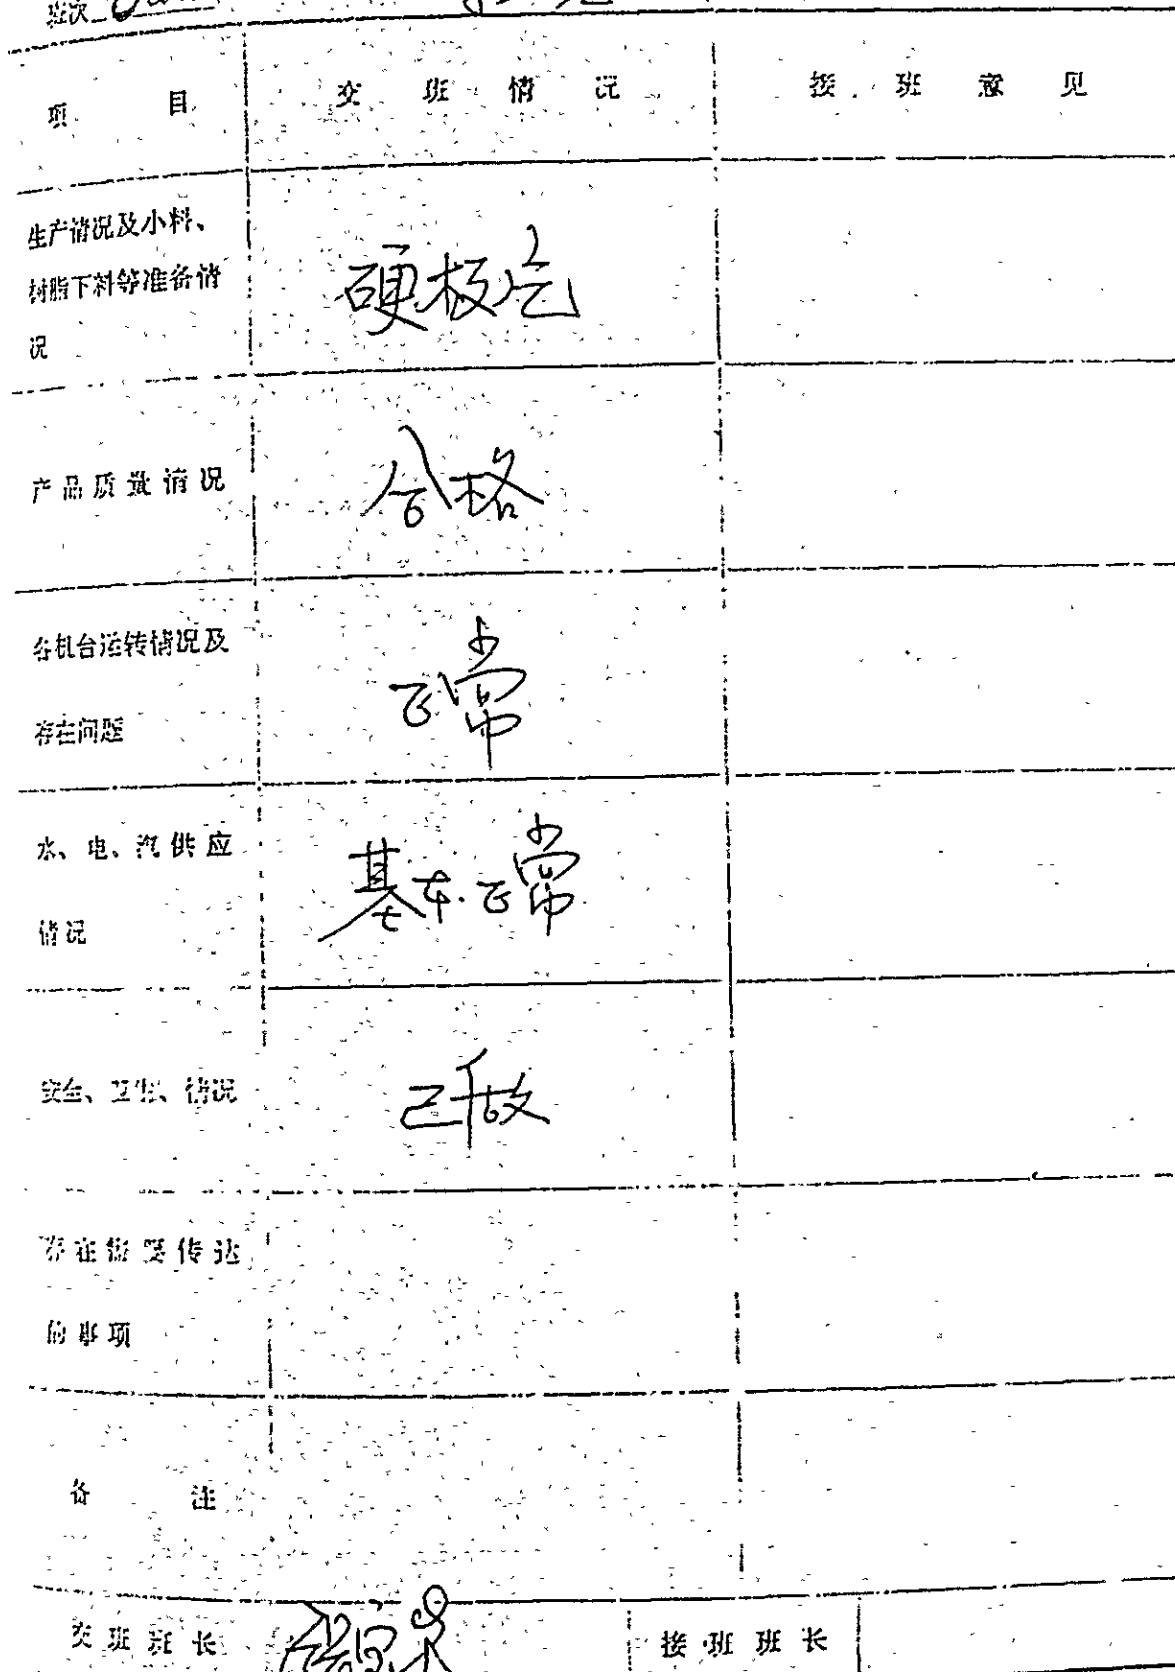 班次
项 目 交 班 情 况 接 班 意 见
生产情况及小料、
树脂下料等准备情
况
硬板
产品质量情况
合格
各机台运转情况及
存在问题
正常
水、电、汽供应
情况
基本正常
安全、卫生、情况
已做
存在需要传达
的事项
备 注
交班班长 接班班长